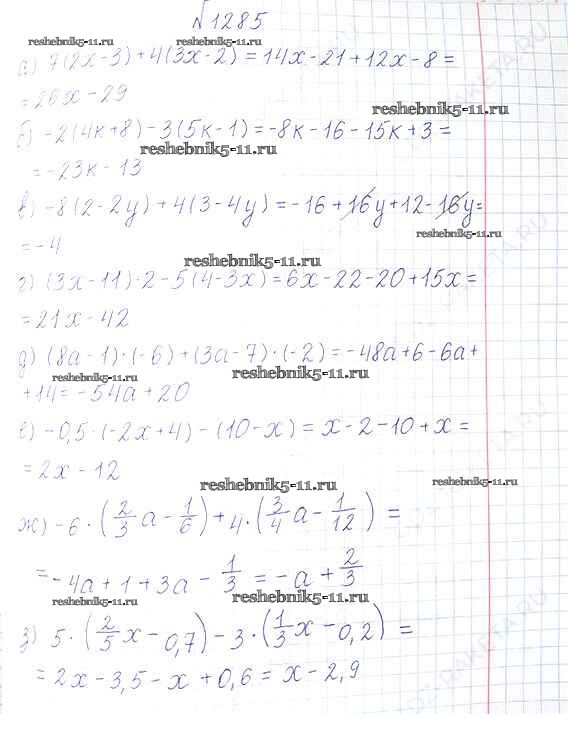 №1285
reshebnik5-11.ru
а) 7(2x-3)+4(3x-2)=14x-21+12x-8=
=26x-29
reshebnik5-11.ru
б) -2(4к+8)-3(5к-1)=-8к-16-15к+3=
reshebnik5-11.ru
=-23к-13
в) -8(2-2y)+4(3-4y)=-16+16y+12-16y=
reshebnik5-11.ru
=-4
reshebnik5-11.ru
г) (3x-11)·2-5(4-3x)=6x-22-20+15x=
=21x-42
д) (8a-1)·(-6)+(3a-7)·(-2)=-48a+6-6a+
reshebnik5-11.ru reshebnik5-11.ru
+14=-54a+20
е) -0,5·(-2x+4)-(10-x)=x-2-10+x=
=2x-12
reshebnik5-11.ru reshebnik5-11.ru
ж) -6·(2/3 a-1/6)+4·(3/4 a-1/12)=
=-4a+1+3a-1/3=-a+2/3
reshebnik5-11.ru reshebnik5-11.ru
з) 5·(2/5 x-0,7)-3·(1/3 x-0,2)=
=2x-3,5-x+0,6=x-2,9